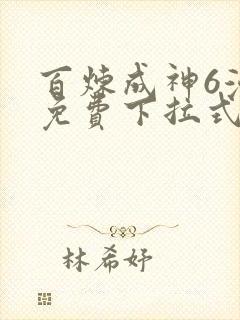 百炼成神6
免費下拉式
林希妤